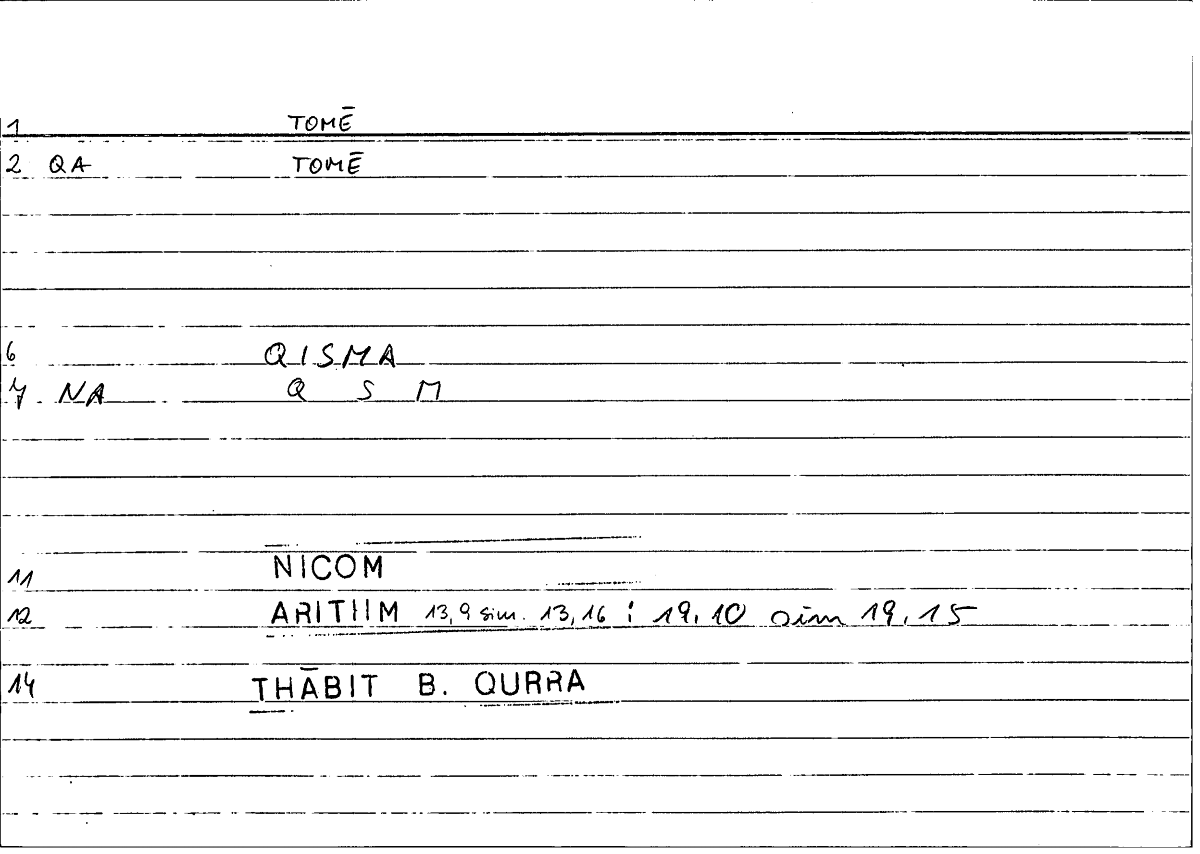 1 TOMĒ
2 QA TOMĒ
6 QISMA
7 NA Q S M
11 NICOM
12 ARITHM 13,9 sim. 13,16 : 19,10 sim 19,15
14 THĀBIT B. QURRA